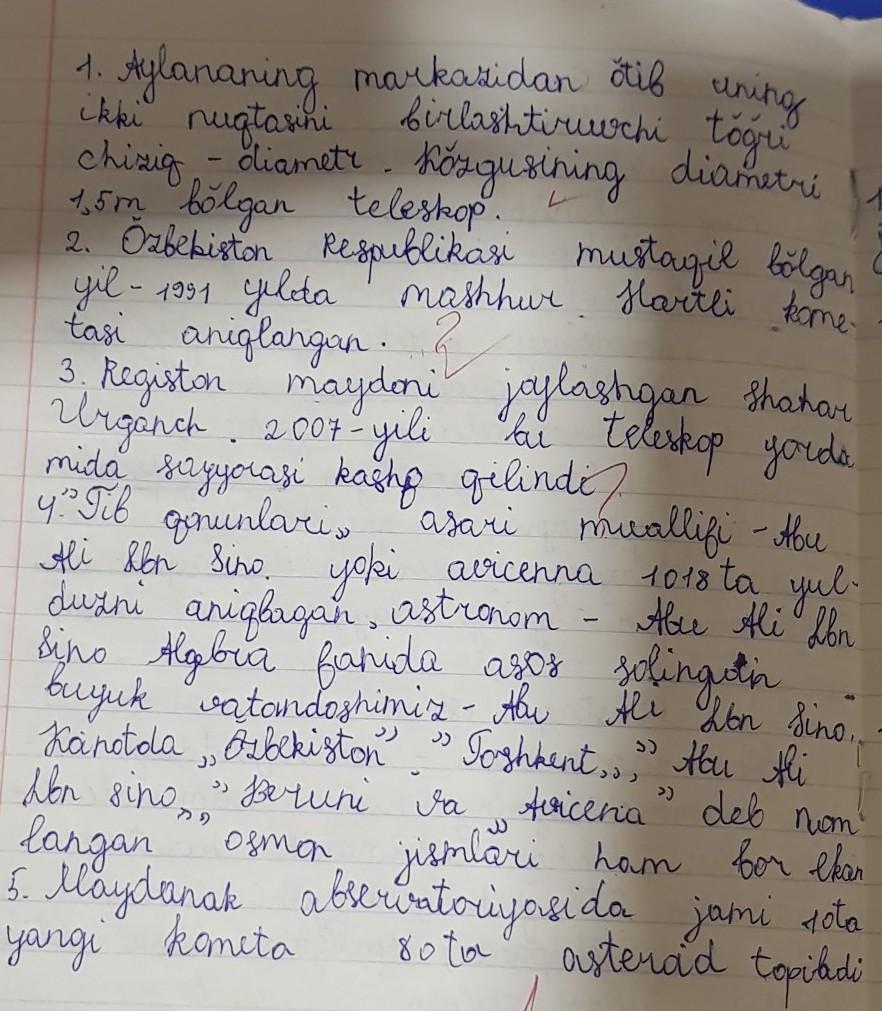 1. Aylananing markazidan ŏtib uning
ikki nuqtasini birlashtiruvchi tŏğri
chiziq - diametr. Kŏzgusining diametri
1,5m bŏlgan teleskop.
2. Ŏzbekiston Respublikasi mustaqil bŏlgan
yil - 1991 yilda mashhur Hartli kome-
tasi aniqlangan.
3. Registon maydoni joylashgan shahar
Urganch. 2007-yili bu teleskop yorda
mida sayyorasi kashf qilindi
4. "Tib qonunlari„ asari muallifi - Abu
Ali Ibn Sino. yoki avicenna 1018 ta yul-
duzni aniqlagan, astronom - Abu Ali Ibn
Sino Algebra fanida asos solingan
buyuk vatandoshimiz - Abu Ali Ibn Sino.
Kanotda „Ŏzbekiston" "Toshkent„, " Abu Ali
Ibn sino„ "Beruni va „Avicena" deb nom
langan osmon jismlari ham bor ekan
5. Maydanak abservatoriyasida jami 10ta
yangi kometa 80ta asteroid topiladi